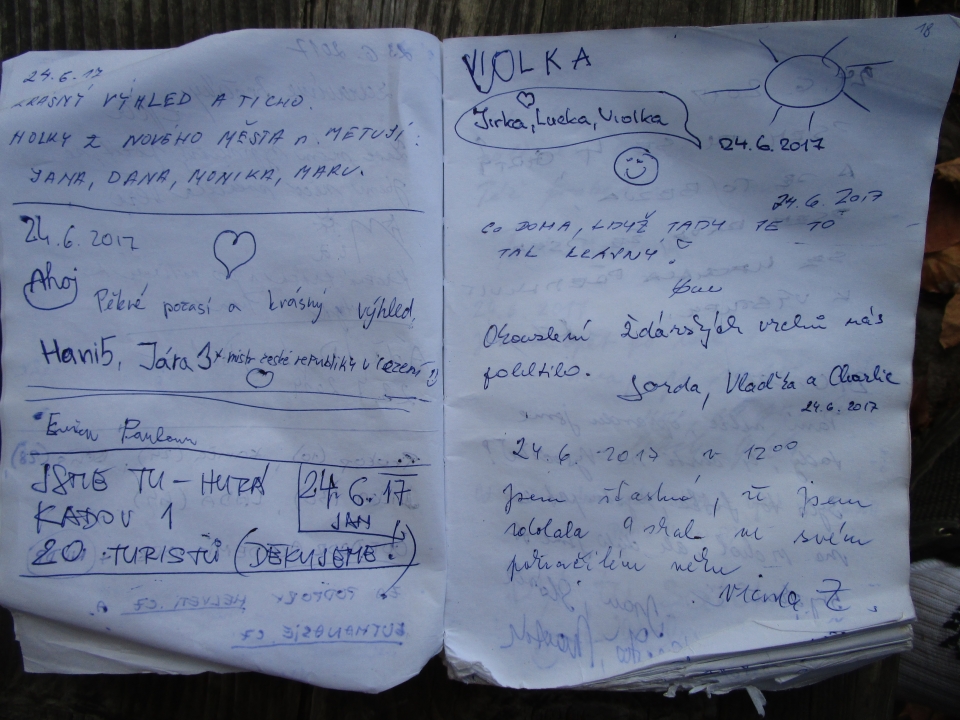 24.6.17
KRÁSNÝ VÝHLED A TICHO.
HOLKY Z NOVÉHO MĚSTA n. METUJÍ:
JANA, DANA, MONIKA,
24.6.2017
Ahoj
Pěkné počasí a krásný výhled,
Hani5, Jára 3x mistr české republiky v
JSME TU-HURÁ
KADOV 1
20 TURISTŮ (DĚKUJEME!)
24.6.17
JAN
18
VIOLKA
Jirka, Lucka, Violka
24.6.2017
24.6.2017
CO DOMA, KDYŽ TADY JE TO
TAK KRÁSNÝ?
Okouzlení Žďárských vrchů nás
pohltilo.
Vlaďka a Charlie
24.6.2017
24.6.2017 v 12⁰⁰
Jsem šťastná, že jsem
zdolala 9 skal ve svém
pokročilém věku